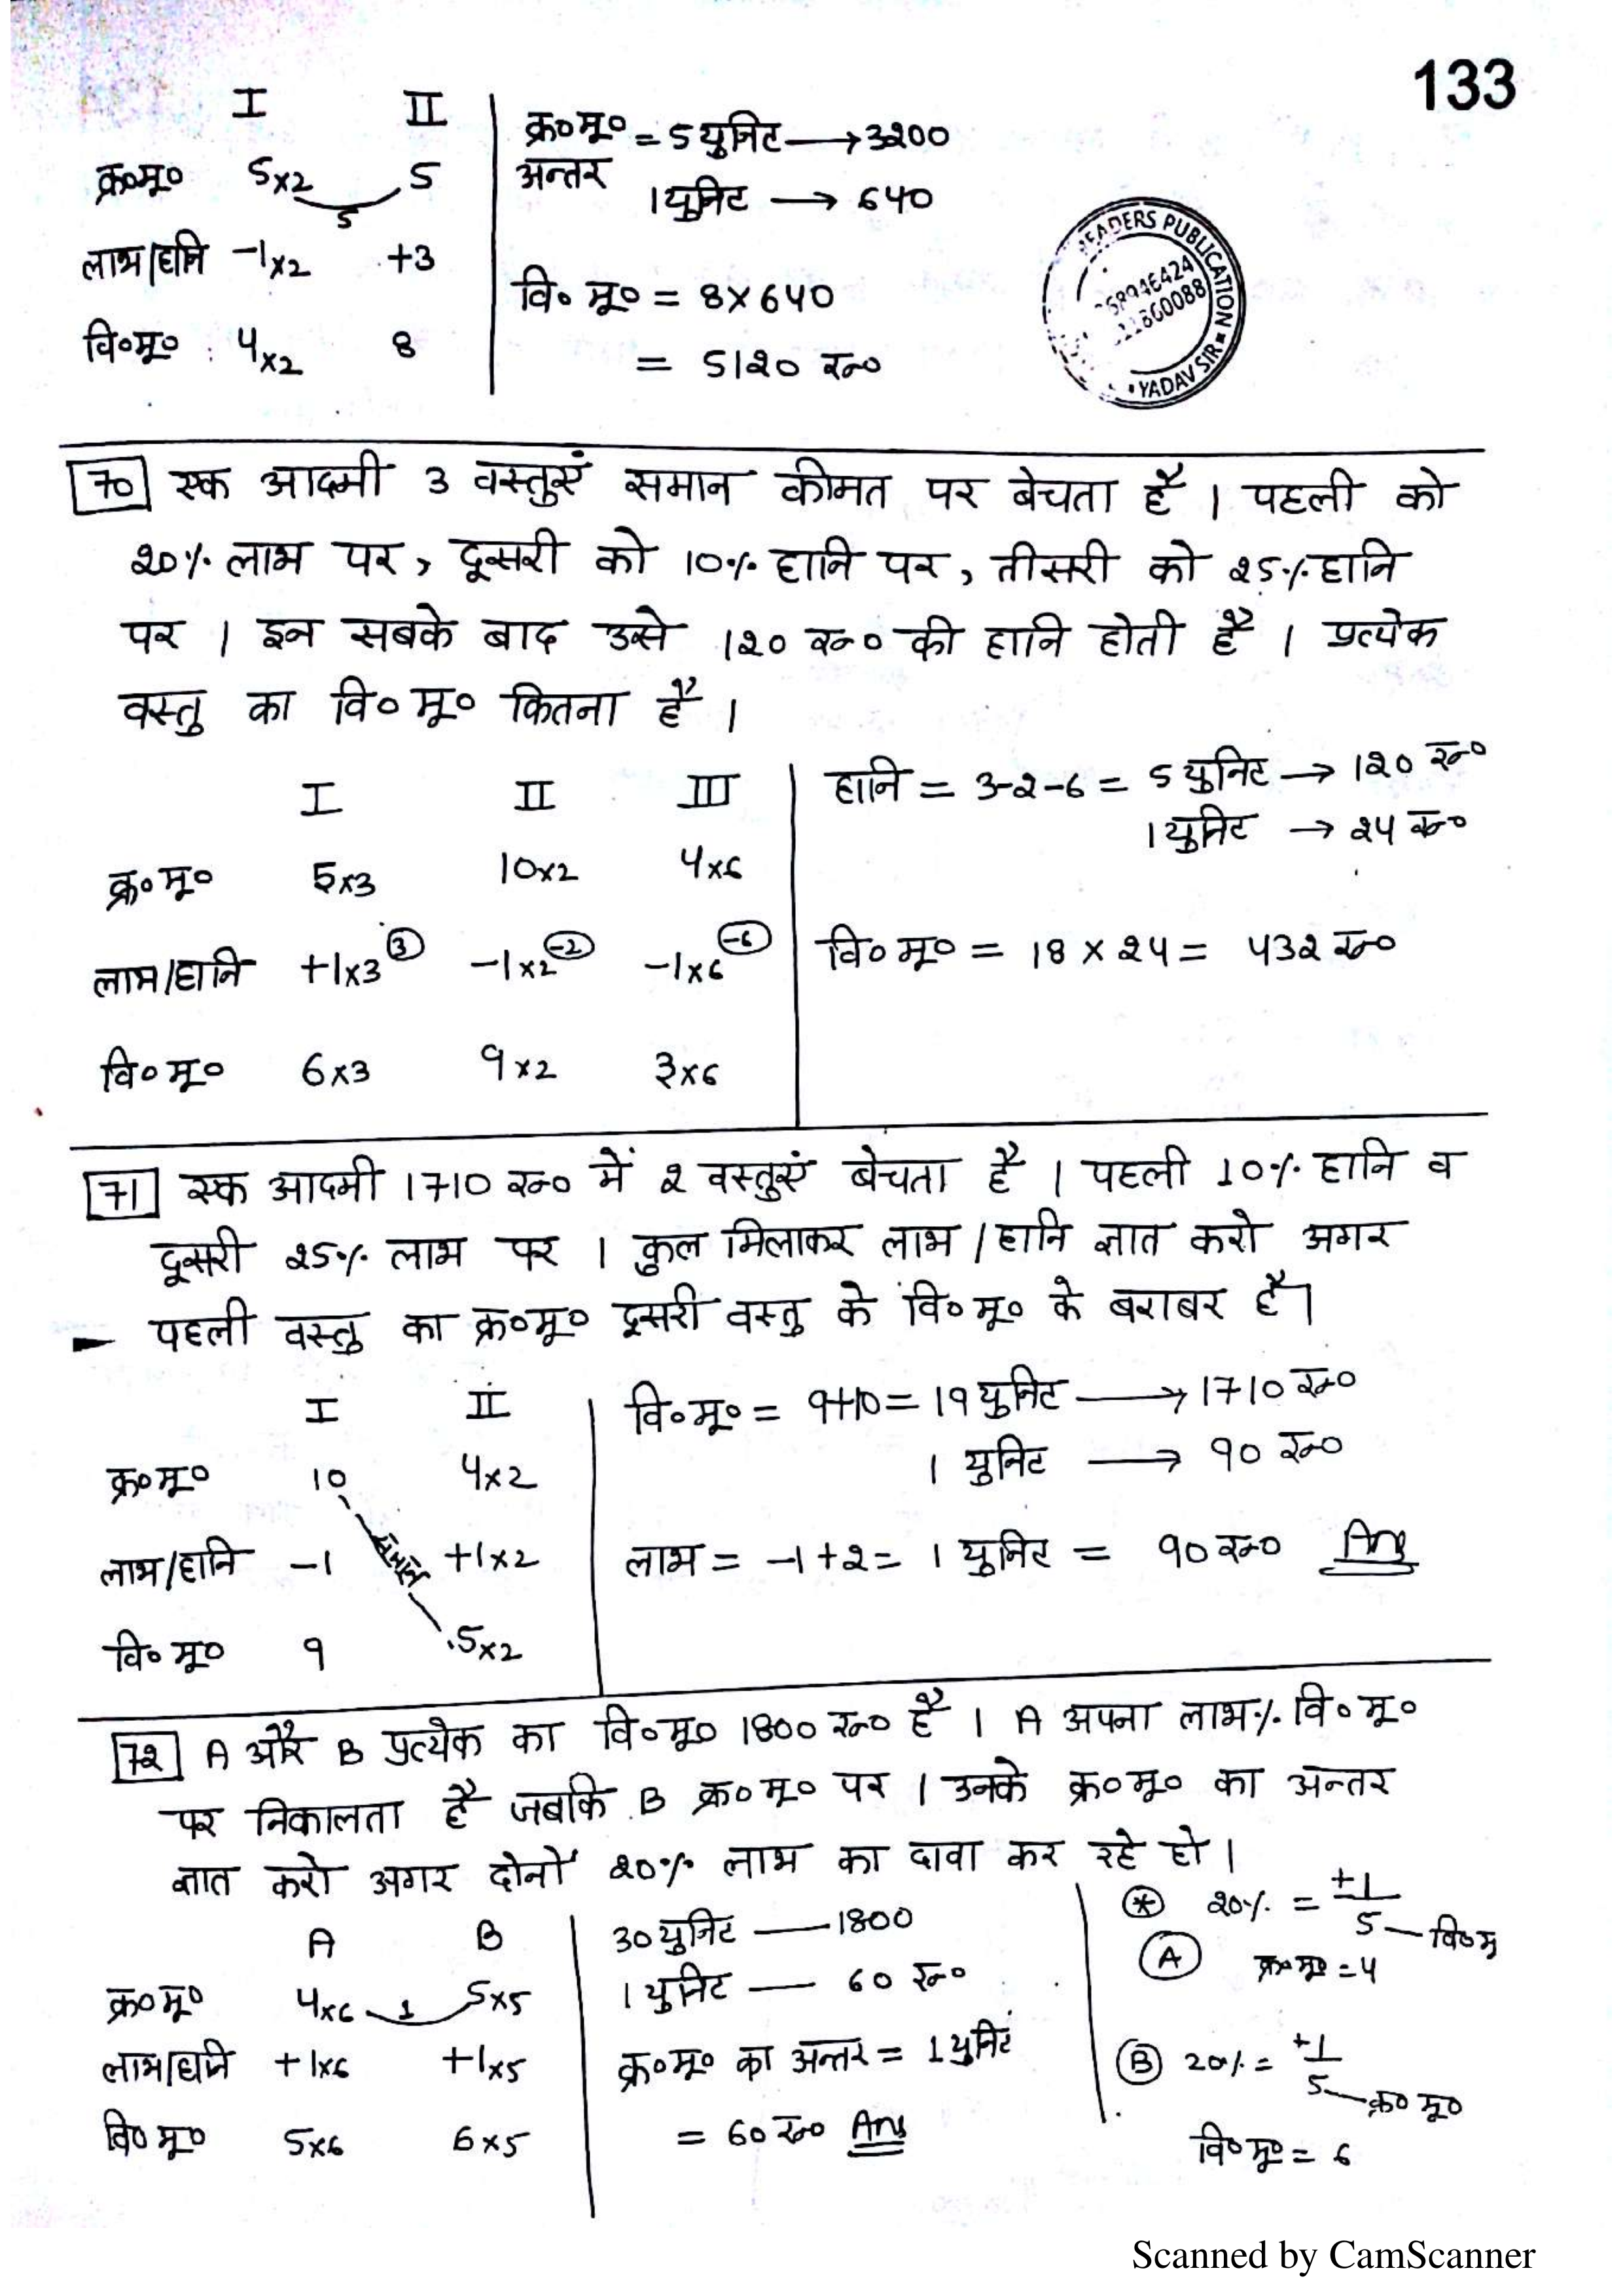 133
I II
क्र०मू० 5x2 5
5
लाभ/हानि -1x2 +3
वि०मू० : 4x2 8
क्र०मू० = 5 युनिट → 3200
अन्तर
1 युनिट → 640
वि० मू० = 8 x 640
= 5120 रू०
EADERS PUBLICATION
YADAV SIR
70 एक आदमी 3 वस्तुएं समान कीमत पर बेचता है । पहली को
20% लाभ पर, दूसरी को 10% हानि पर, तीसरी को 25% हानि
पर । इन सबके बाद उसे 120 रू० की हानि होती है । प्रत्येक
वस्तु का वि० मू० कितना है ।
I II III
क्र० मू० 5x3 10x2 4x6
लाभ/हानि +1x3 (3) -1x2 (-2) -1x6 (-6)
वि० मू० 6x3 9x2 3x6
हानि = 3-2-6 = 5 युनिट → 120 रू०
1 युनिट → 24 रू०
वि० मू० = 18 x 24 = 432 रू०
71 एक आदमी 1710 रू० में 2 वस्तुएं बेचता है । पहली 10% हानि व
दूसरी 25% लाभ पर । कुल मिलाकर लाभ / हानि ज्ञात करो अगर
पहली वस्तु का क्र०मू० दूसरी वस्तु के वि० मू० के बराबर है।
I II
क्र० मू० 10 4x2
समान
लाभ/हानि -1 +1x2
वि० मू० 9 5x2
वि० मू० = 9+10 = 19 युनिट → 1710 रू०
1 युनिट → 90 रू०
लाभ = -1+2 = 1 युनिट = 90 रू० Ans
72 A और B प्रत्येक का वि० मू० 1800 रू० है । A अपना लाभ% वि० मू०
पर निकालता है जबकि B क्र० मू० पर । उनके क्र० मू० का अन्तर
ज्ञात करो अगर दोनों 20% लाभ का दावा कर रहे हो ।
A B
क्र० मू० 4x6 1 5x5
लाभ/हानि +1x6 +1x5
वि० मू० 5x6 6x5
30 युनिट — 1800
1 युनिट — 60 रू०
क्र० मू० का अन्तर = 1 युनिट
= 60 रू० Ans
* 20% = +1/5 — वि० मू
A क्र० मू० = 4
B 20% = +1/5 — क्र० मू०
वि० मू० = 6
Scanned by CamScanner